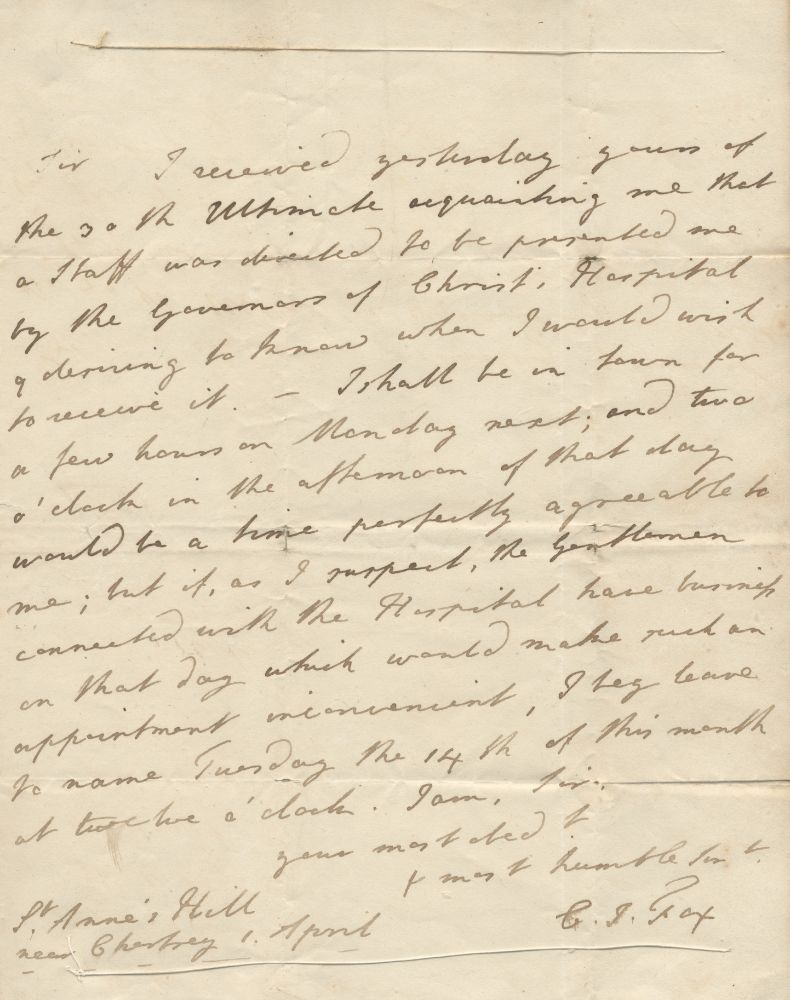 Sir I received yesterday yours of
the 30th Ultimate acquainting me that
a Staff was directed to be presented me
by the Governors of Christ's Hospital
& desiring to know when I would wish
to receive it. - I shall be in town for
a few hours on Monday next; and two
o'clock in the afternoon of that day
would be a time perfectly agreeable to
me; but if, as I suspect, the Gentlemen
connected with the Hospital have business
on that day which would make such an
appointment inconvenient, I beg leave
to name Tuesday the 14th of this month
at twelve o'clock. I am, Sir,
your most obedt
& most humble Servt.
C. J. Fox
St Anne's Hill
near Chertsey 1. April